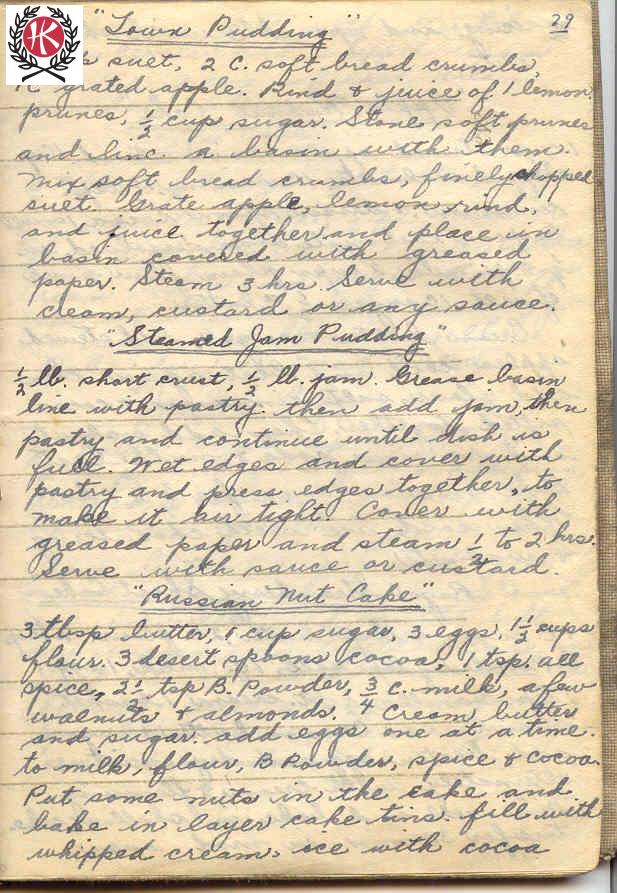 29
"Town Pudding"
suet, 2 C. soft bread crumbs,
grated apple. Rind & juice of 1 lemon.
prunes, 1/2 cup sugar. Stone soft prunes
and line a basin with them.
Mix soft bread crumbs, finely chopped
suet. Grate apple, lemon rind,
and juice together and place in
basin covered with greased
paper. Steam 3 hrs. Serve with
cream, custard or any sauce.
"Steamed Jam Pudding"
1/2 lb. short crust, 1/2 lb. jam. Grease basin
line with pastry. then add jam, then
pastry and continue until dish is
full. Wet edges and cover with
pastry and press edges together, to
make it air tight. Cover with
greased paper and steam 1 1/2 to 2 hrs.
Serve with sauce or custard.
"Russian Nut Cake"
3 tbsp butter, 1 cup sugar, 3 eggs, 1 1/2 cups
flour. 3 desert spoons cocoa, 1 tsp. all
spice, 2 1/2 tsp B. Powder, 3/4 C. milk, a few
walnuts & almonds. Cream butter
and sugar. add eggs one at a time.
to milk, flour, B Powder, spice & cocoa.
Put some nuts in the cake and
bake in layer cake tins. fill with
whipped cream, ice with cocoa
HK